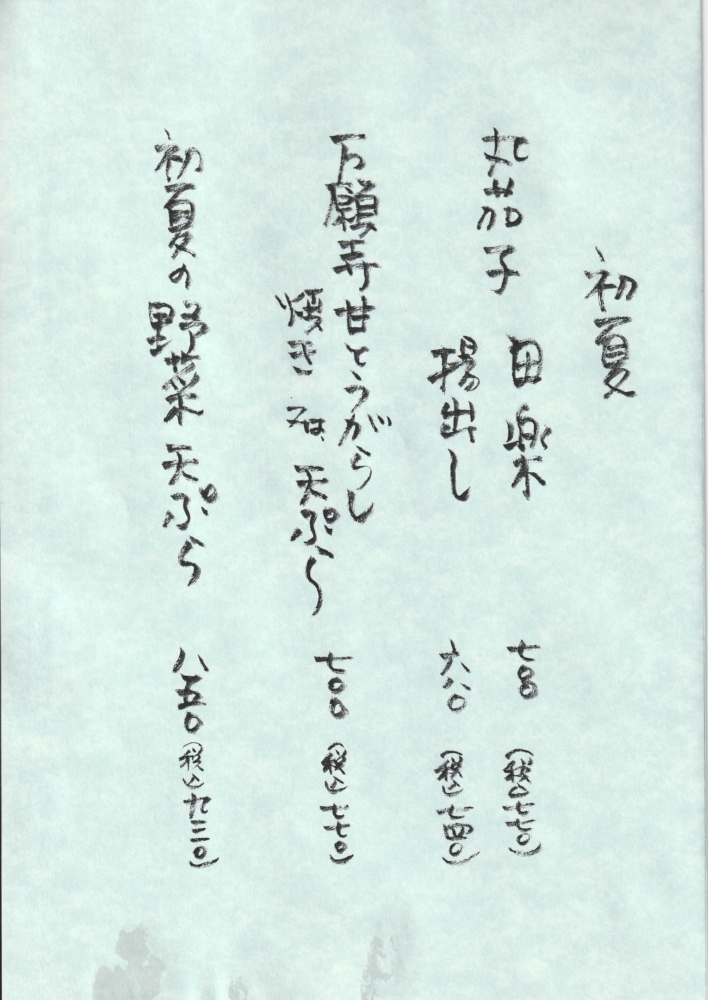 初夏
丸茄子 田楽 七〇〇 (税込七七〇)
揚出し 六八〇 (税込七四〇)
万願寺甘とうがらし
焼き 又は 天ぷら 七〇〇 (税込七七〇)
初夏の野菜天ぷら 八五〇 (税込九三〇)